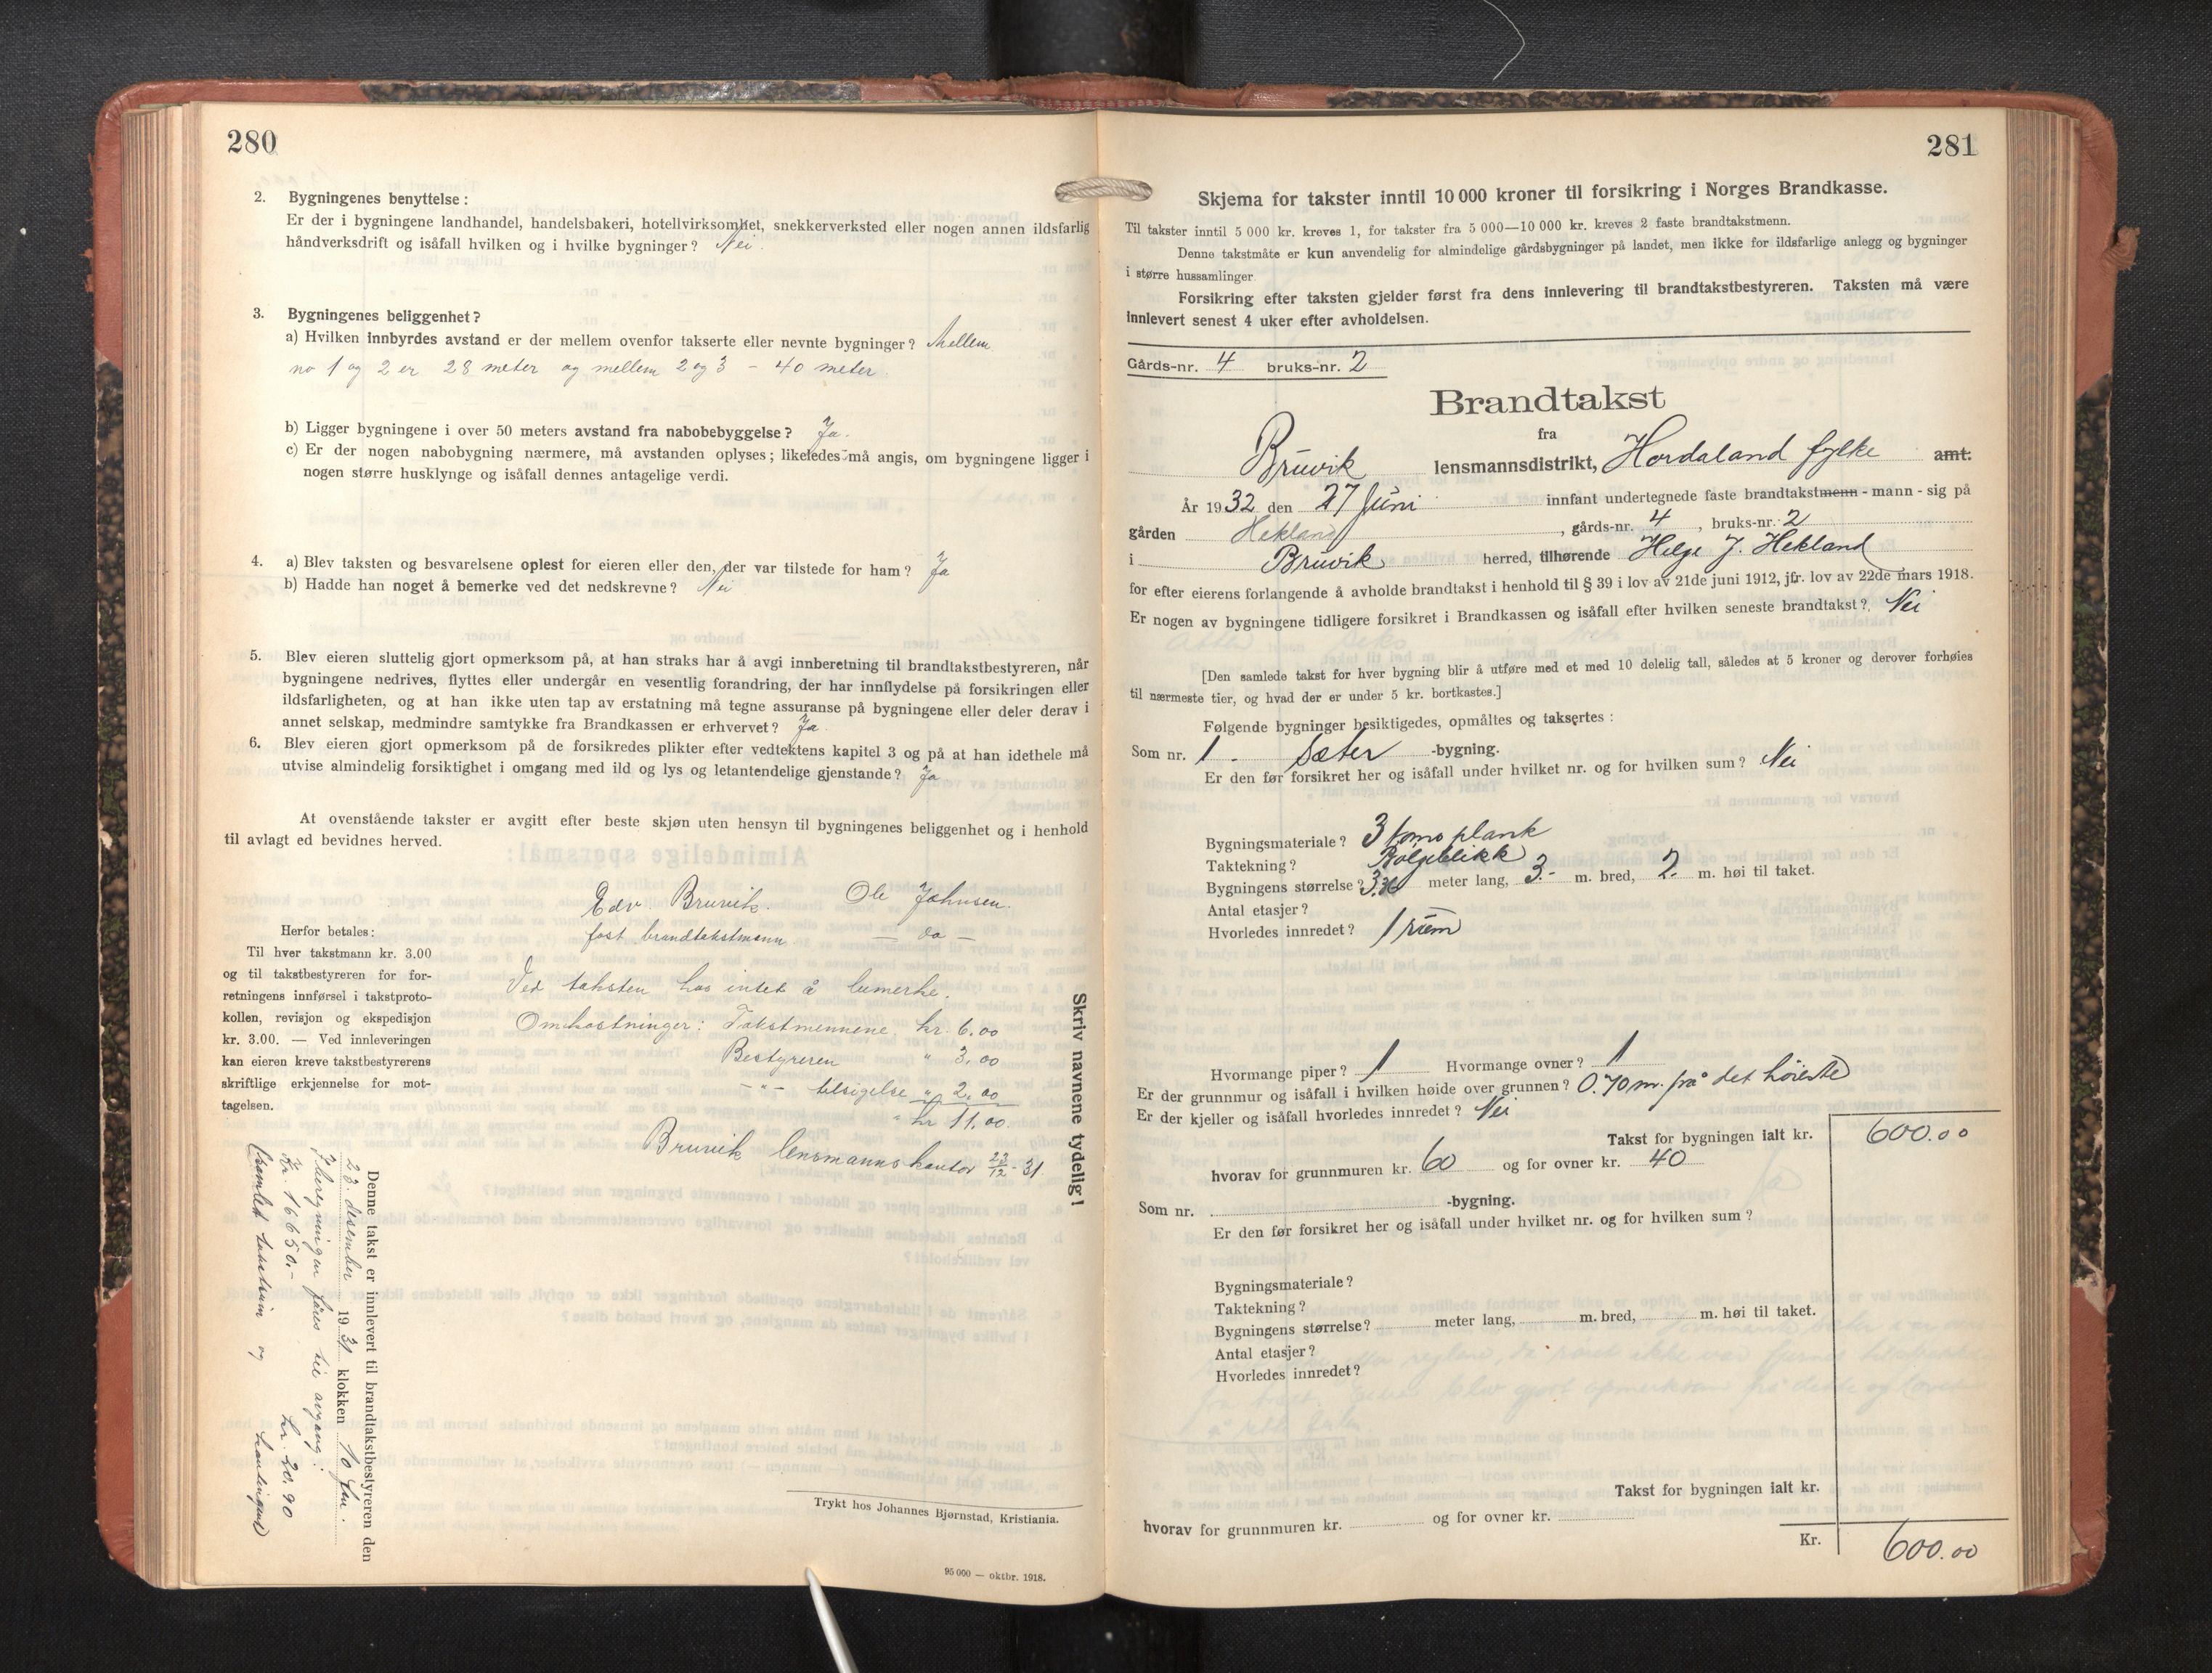 280
2. Bygningenes benyttelse:
Er der i bygningene landhandel, handelsbakeri, hotellvirksomhet, snekkerverksted eller nogen annen ildsfarlig
håndverksdrift og isåfall hvilken og i hvilke bygninger? Nei.
3. Bygningenes beliggenhet?
a) Hvilken innbyrdes avstand er der mellem ovenfor takserte eller nevnte bygninger? Mellem
no 1 og 2 er 28 meter og mellem 2 og 3 - 40 meter.
b) Ligger bygningene i over 50 meters avstand fra nabobebyggelse? Ja.
c) Er der nogen nabobygning nærmere, må avstanden oplyses; likeledes må angis, om bygningene ligger i
nogen større husklynge og isåfall dennes antagelige verdi.
4. a) Blev taksten og besvarelsene oplest for eieren eller den, der var tilstede for ham? Ja
b) Hadde han noget å bemerke ved det nedskrevne? Nei
5. Blev eieren sluttelig gjort opmerksom på, at han straks har å avgi innberetning til brandtakstbestyreren, når
bygningene nedrives, flyttes eller undergår en vesentlig forandring, der har innflydelse på forsikringen eller
ildsfarligheten, og at han ikke uten tap av erstatning må tegne assuranse på bygningene eller deler derav i
annet selskap, medmindre samtykke fra Brandkassen er erhvervet? Ja
6. Blev eieren gjort opmerksom på de forsikredes plikter efter vedtektens kapitel 3 og på at han idethele må
utvise almindelig forsiktighet i omgang med ild og lys og letantendelige gjenstande? Ja
At ovenstående takster er avgitt efter beste skjøn uten hensyn til bygningenes beliggenhet og i henhold
til avlagt ed bevidnes herved.
Edv Bruvik. Ole Johnsen.
fast brandtakstmann. — do —
Herfor betales:
Til hver takstmann kr. 3.00
og til takstbestyreren for for-
retningens innførsel i takstproto-
kollen, revisjon og ekspedisjon
kr. 3.00. — Ved innleveringen
kan eieren kreve takstbestyrerens
skriftlige erkjennelse for mot-
tagelsen.
Ved taksten has intet å bemerke.
Omkostninger: Takstmennene kr. 6.00
Bestyreren " 3.00
- " - tilsigelse " 2.00
" kr 11.00.
Bruvik lensmannskontor 23/12-31
Skriv navnene tydelig!
Denne takst er innlevert til brandtakstbestyreren den
23. desember 1931 klokken 10 fm.
Kr. 16650.- kr. 20.90
(samlet takstsum og kontingent)
Trykt hos Johannes Bjørnstad, Kristiania.
95 000 — oktbr. 1918.
281
Skjema for takster inntil 10 000 kroner til forsikring i Norges Brandkasse.
Til takster inntil 5 000 kr. kreves 1, for takster fra 5 000—10 000 kr. kreves 2 faste brandtakstmenn.
Denne takstmåte er kun anvendelig for almindelige gårdsbygninger på landet, men ikke for ildsfarlige anlegg og bygninger
i større hussamlinger
Forsikring efter taksten gjelder først fra dens innlevering til brandtakstbestyreren. Taksten må være
innlevert senest 4 uker efter avholdelsen.
Gårds-nr. 4 bruks-nr. 2
Brandtakst
fra
Bruvik lensmannsdistrikt, Hordaland fylke amt.
År 1932 den 27 Juni innfant undertegnede faste brandtakstmenn - mann - sig på
gården Hekland, gårds-nr. 4, bruks-nr. 2
i Bruvik herred, tilhørende Helge J. Hekland
for efter eierens forlangende å avholde brandtakst i henhold til § 39 i lov av 21de juni 1912, jfr. lov av 22de mars 1918.
Er nogen av bygningene tidligere forsikret i Brandkassen og isåfall efter hvilken seneste brandtakst? Nei
[Den samlede takst for hver bygning blir å utføre med et med 10 delelig tall, således at 5 kroner og derover forhøies
til nærmeste tier, og hvad der er under 5 kr. bortkastes.]
Følgende bygninger besiktigedes, opmåltes og taksertes:
Som nr. 1. Sæter -bygning.
Er den før forsikret her og isåfall under hvilket nr. og for hvilken sum? Nei
Bygningsmateriale? 3 toms plank
Taktekning? Bølgeblikk
Bygningens størrelse? meter lang, 3.- m. bred, 2. m. høi til taket.
Antal etasjer?
Hvorledes innredet? 1 rum
Hvormange piper? 1 Hvormange ovner? 1
Er der grunnmur og isåfall i hvilken høide over grunnen? 0.70 m. på det høieste
Er der kjeller og isåfall hvorledes innredet? Nei
Takst for bygningen ialt kr. 600.00
hvorav for grunnmuren kr. 60 og for ovner kr. 40
Som nr. -bygning.
Er den før forsikret her og isåfall under hvilket nr. og for hvilken sum?
Bygningsmateriale?
Taktekning?
Bygningens størrelse? meter lang, m. bred, m. høi til taket.
Antal etasjer?
Hvorledes innredet?
Takst for bygningen ialt kr.
hvorav for grunnmuren kr. og for ovner kr.
Kr. 600.00